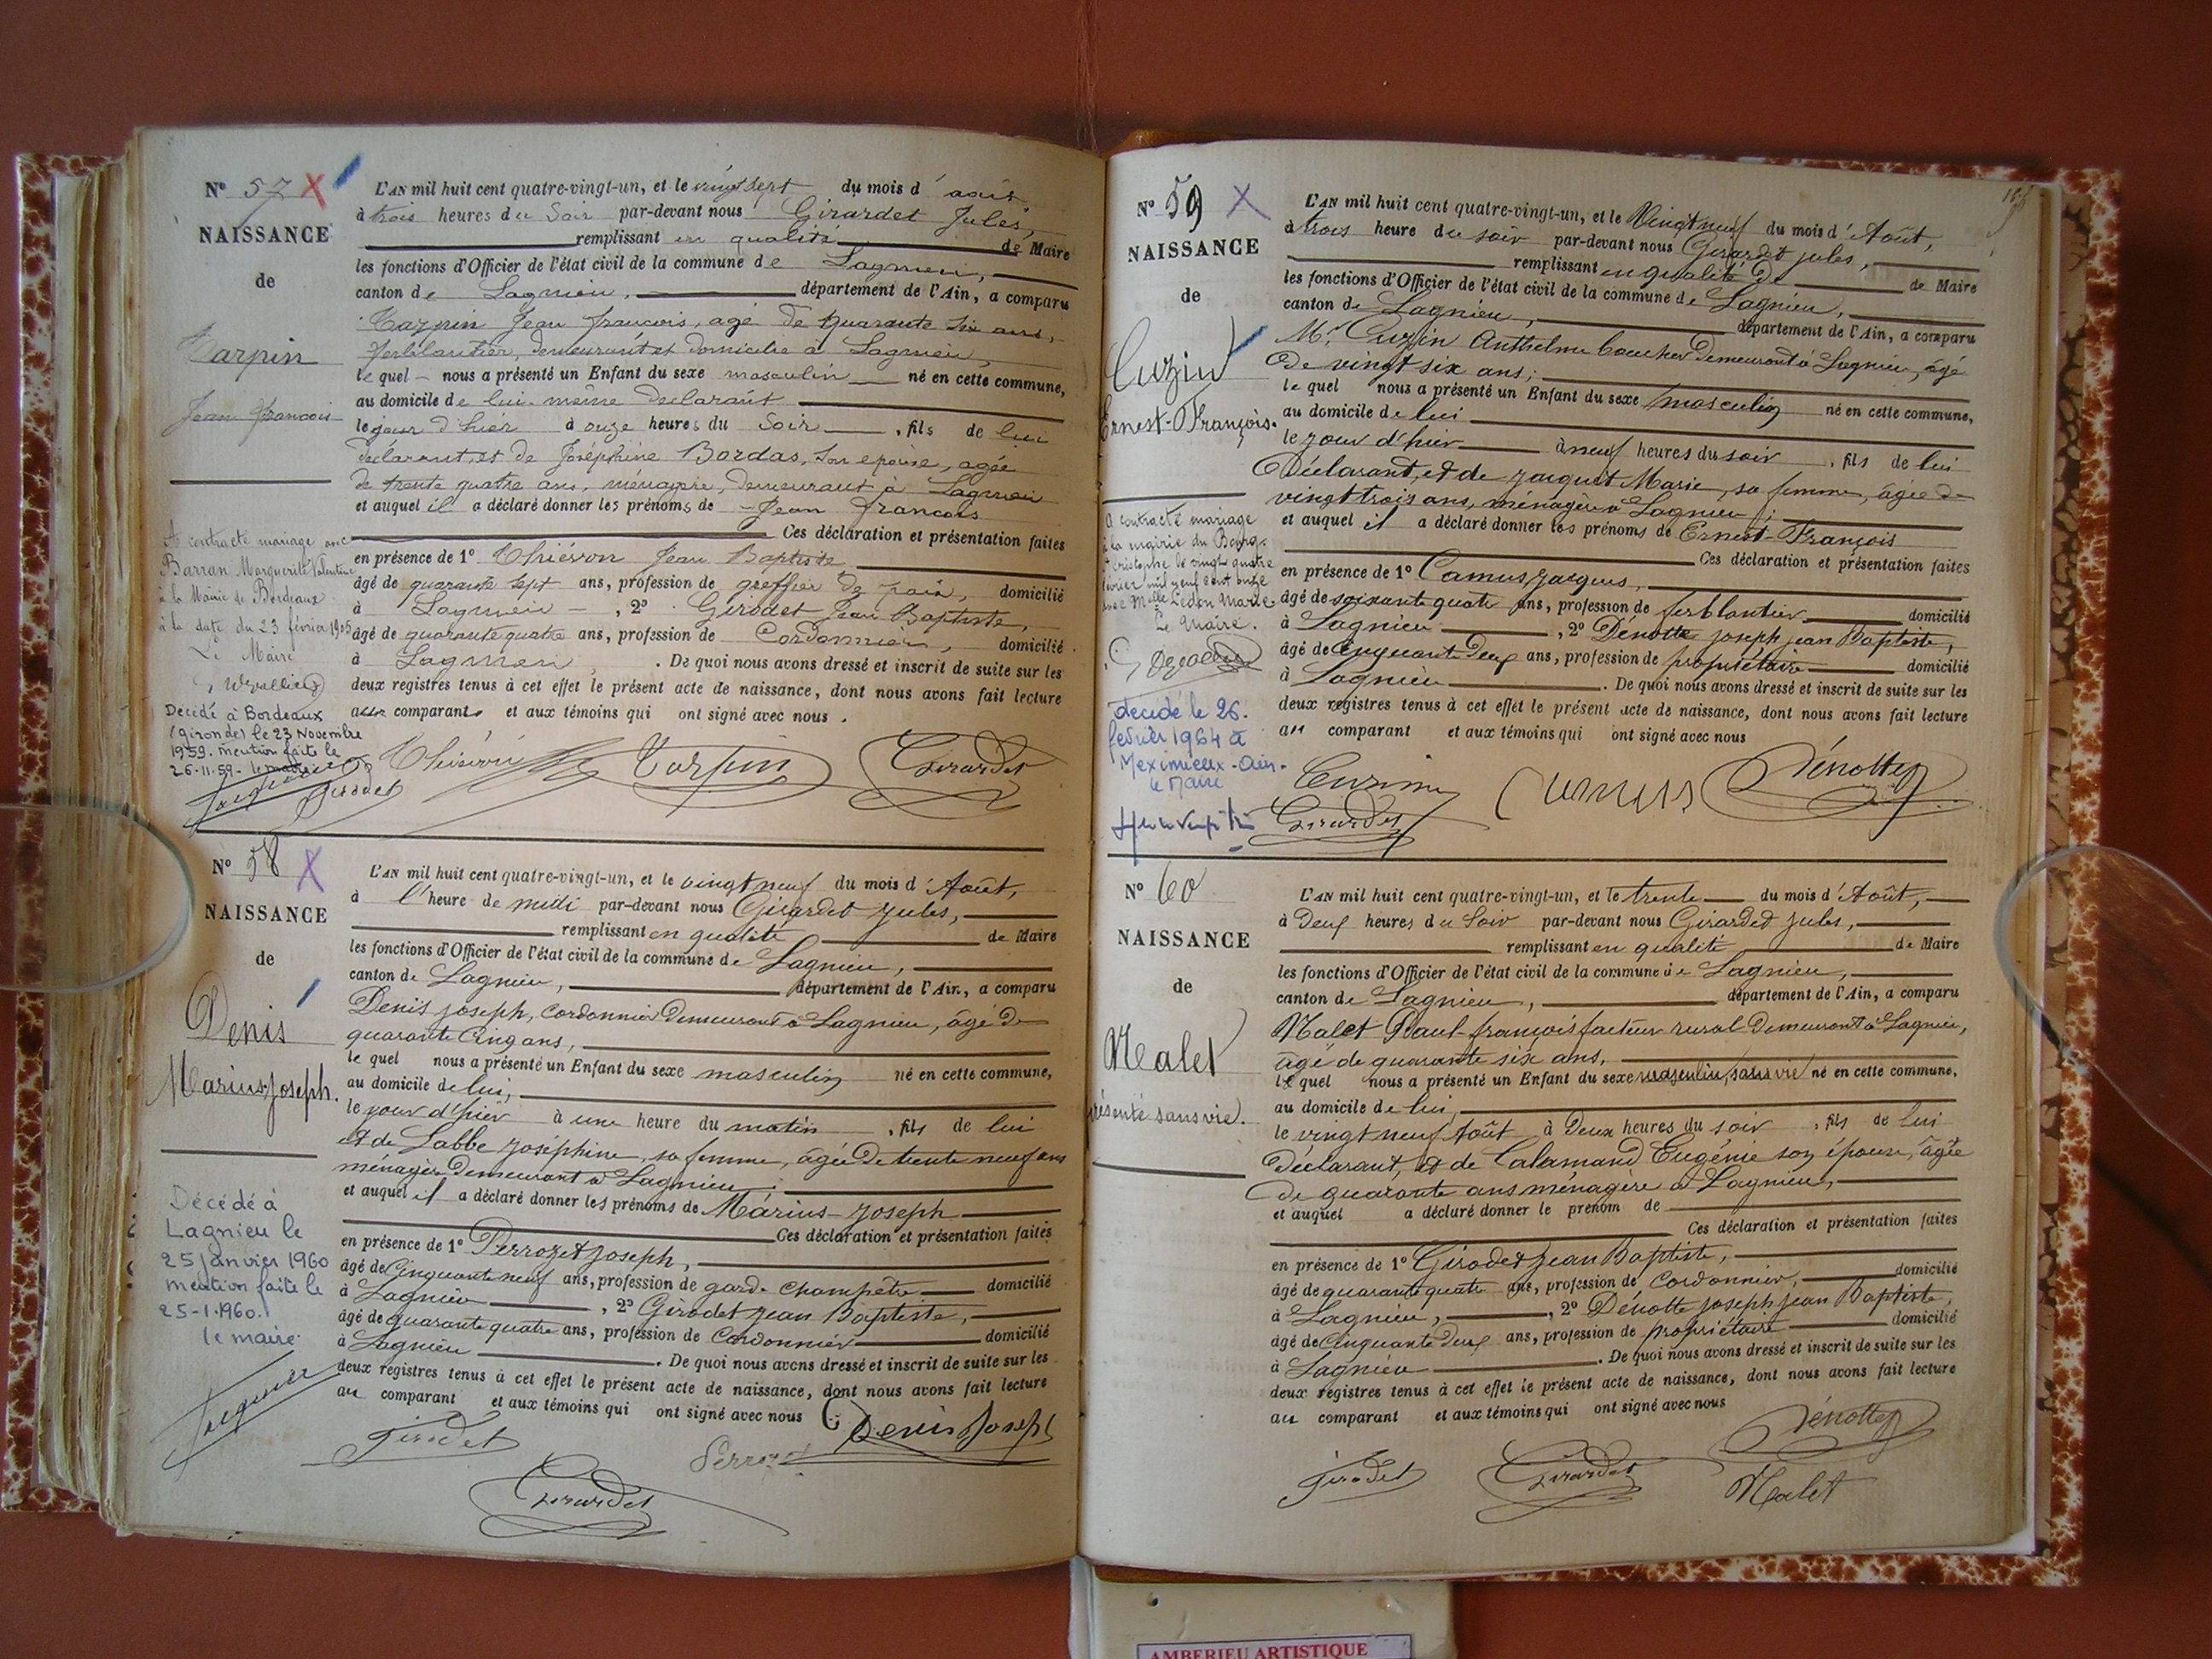 N° 57 X
NAISSANCE
de
Tarpin
Jean François
L'AN mil huit cent quatre-vingt-un, et le vingt sept du mois d'août
à trois heures du Soir par-devant nous Girardet Jules,
remplissant en qualité de Maire
les fonctions d'Officier de l'état civil de la commune de Lagnieu,
canton de Lagnieu, département de l'Ain, a comparu
Tarpin Jean françois, agé de quarante six ans,
ferblantier, demeurant et domicilié à Lagnieu,
le quel nous a présenté un Enfant du sexe masculin né en cette commune,
au domicile de lui-même déclarant
le jour d'hier à onze heures du Soir, fils de lui
déclarant, et de Joséphine Bordas, son épouse, agée
de trente quatre ans, ménagère, demeurant à Lagnieu
et auquel il a déclaré donner les prénoms de Jean François
Ces déclaration et présentation faites
en présence de 1° Thiévon Jean Baptiste
âgé de quarante sept ans, profession de greffier de paix, domicilié
à Lagnieu, 2° Girodet Jean Baptiste,
âgé de quarante quatre ans, profession de Cordonnier, domicilié
à Lagnieu. De quoi nous avons dressé et inscrit de suite sur les
deux registres tenus à cet effet le présent acte de naissance, dont nous avons fait lecture
aux comparants et aux témoins qui ont signé avec nous.
A contracté mariage avec
Barran Marguerite Valentine
à la Mairie de Bordeaux
à la date du 23 février 1905
Le Maire
Décédé à Bordeaux
(gironde) le 23 Novembre
1959. mention faite le
26-11-59. le maire
Thiévon Tarpin Girardet
Girodet
N° 58 X
NAISSANCE
de
Denis
Marius-Joseph.
L'AN mil huit cent quatre-vingt-un, et le vingt neuf du mois d'Août,
à l'heure de midi par-devant nous Girardet Jules,
remplissant en qualité de Maire
les fonctions d'Officier de l'état civil de la commune de Lagnieu,
canton de Lagnieu, département de l'Ain, a comparu
Denis Joseph, Cordonnier Demeurant à Lagnieu, âgé de
quarante cinq ans,
le quel nous a présenté un Enfant du sexe masculin né en cette commune,
au domicile de lui,
le jour d'hier à une heure du matin, fils de lui
et de Labbe Joséphine, sa femme, âgée de trente neuf ans
ménagère Demeurant à Lagnieu;
et auquel il a déclaré donner les prénoms de Marius-Joseph
Ces déclaration et présentation faites
en présence de 1° Perrozet Joseph,
âgé de Cinquante neuf ans, profession de garde champêtre domicilié
à Lagnieu, 2° Girodet Jean Baptiste,
âgé de quarante quatre ans, profession de Cordonnier domicilié
à Lagnieu. De quoi nous avons dressé et inscrit de suite sur les
deux registres tenus à cet effet le présent acte de naissance, dont nous avons fait lecture
au comparant et aux témoins qui ont signé avec nous
Décédé à
Lagnieu le
25 janvier 1960
mention faite le
25-1-1960.
le maire
Girodet Perrozet Denis Joseph
Girardet
N° 59 X
NAISSANCE
de
Cuzin
Ernest-François.
L'AN mil huit cent quatre-vingt-un, et le Vingt neuf du mois d'Août,
à trois heure du soir par-devant nous Girardet Jules,
remplissant en qualité de de Maire
les fonctions d'Officier de l'état civil de la commune de Lagnieu,
canton de Lagnieu, département de l'Ain, a comparu
Mr. Cuzin Anthelme boucher Demeurant à Lagnieu, âgé
de vingt six ans;
le quel nous a présenté un Enfant du sexe masculin né en cette commune,
au domicile de lui
le jour d'hier à neuf heures du soir, fils de lui
Déclarant, et de Jacquet Marie, sa femme, âgée de
vingt trois ans, ménagère à Lagnieu;
et auquel il a déclaré donner les prénoms de Ernest-François
Ces déclaration et présentation faites
en présence de 1° Camus Jacques,
âgé de soixante quatre ans, profession de ferblantier domicilié
à Lagnieu, 2° Dénotte Joseph Jean Baptiste,
âgé de Cinquante Deux ans, profession de propriétaire domicilié
à Lagnieu. De quoi nous avons dressé et inscrit de suite sur les
deux registres tenus à cet effet le présent acte de naissance, dont nous avons fait lecture
au comparant et aux témoins qui ont signé avec nous
A contracté mariage
à la mairie du Bourg-
St Christophe le vingt quatre
février mil neuf cent onze
avec Melle Ledon Marie.
Le Maire.
décédé le 26.
février 1964 à
Meximieux-Ain.
le Maire
Cuzin Camus Dénotte
Girardet
N° 60
NAISSANCE
de
Malet
présenté sans vie).
L'AN mil huit cent quatre-vingt-un, et le trente du mois d'Août,
à Deux heures du Soir par-devant nous Girardet Jules,
remplissant en qualité de Maire
les fonctions d'Officier de l'état civil de la commune de Lagnieu,
canton de Lagnieu, département de l'Ain, a comparu
Malet Paul-françois facteur rural Demeurant à Lagnieu,
âgé de quarante six ans,
le quel nous a présenté un Enfant du sexe masculin, sans vie né en cette commune,
au domicile de lui,
le vingt neuf Août à Deux heures du soir, fils de lui
Déclarant, et de Calamand Eugénie son épouse, âgée
de quarante ans ménagère à Lagnieu,
et auquel a déclaré donner le prénom de
Ces déclaration et présentation faites
en présence de 1° Girodet Jean Baptiste,
âgé de quarante quatre ans, profession de Cordonnier, domicilié
à Lagnieu, 2° Dénotte Joseph Jean Baptiste,
âgé de Cinquante Deux ans, profession de propriétaire domicilié
à Lagnieu. De quoi nous avons dressé et inscrit de suite sur les
deux registres tenus à cet effet le présent acte de naissance, dont nous avons fait lecture
au comparant et aux témoins qui ont signé avec nous
Dénotte
Girodet Girardet Malet
AMBERIEU ARTISTIQUE